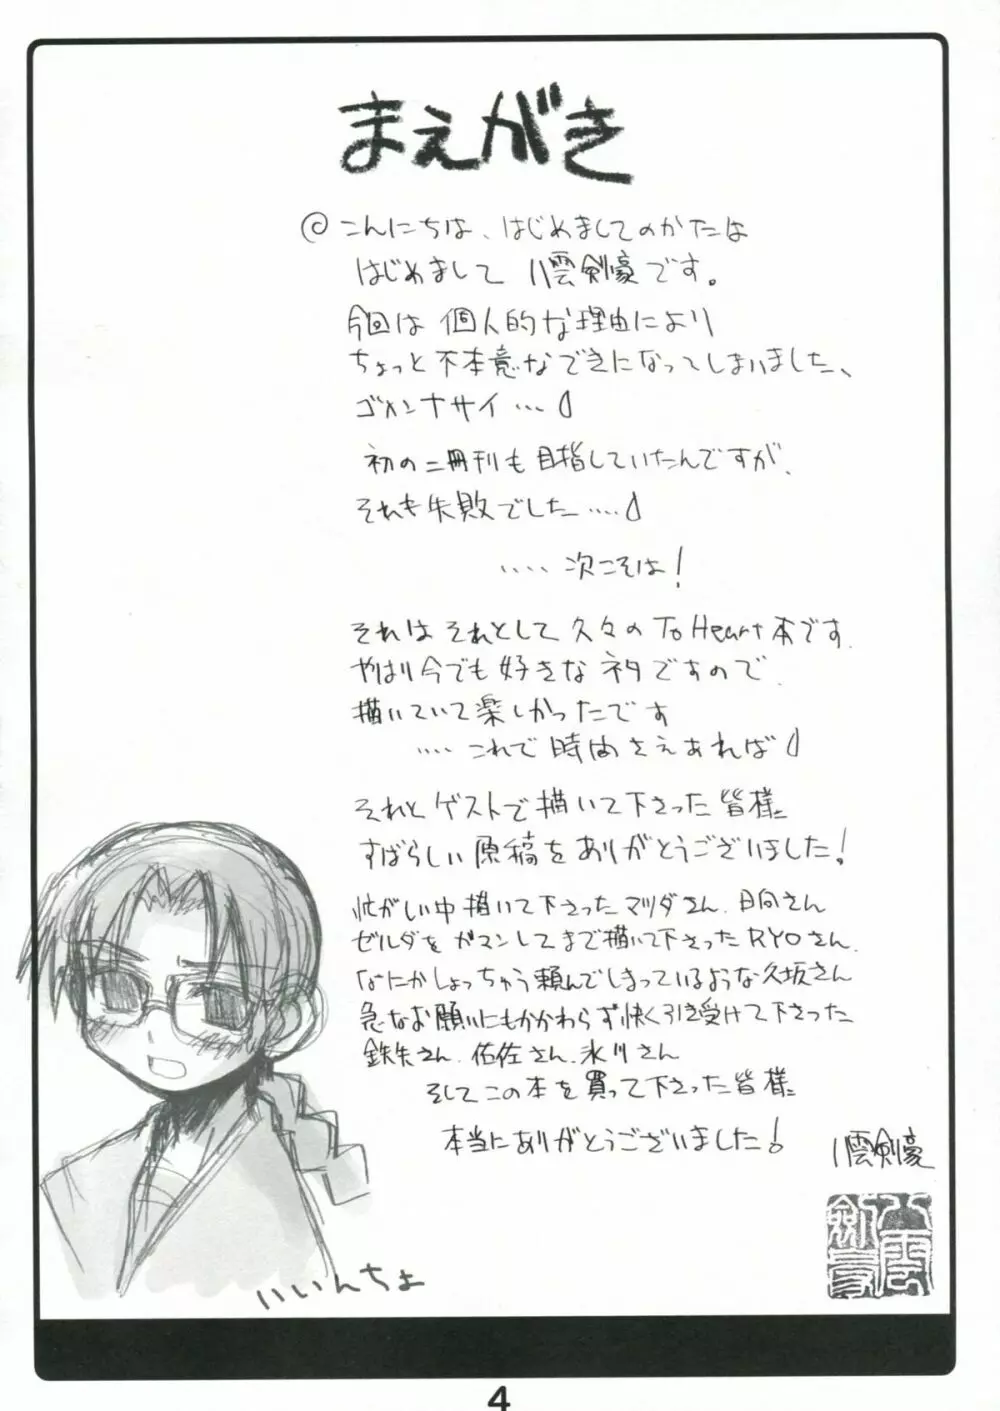 まえがき
こんにちは、はじめましてのかたは
はじめまして 八雲剣豪です。
今回は個人的な理由により
ちょっと不本意なできになってしまいました、
ゴメンナサイ…
初の二冊刊も目指していたんですが、
それも失敗でした……
……次こそは!
それはそれとして久々のToHeart本です。
やはり今でも好きなネタですので
描いていて楽しかったです
……これで時間さえあれば
それとゲストで描いて下さった皆様
すばらしい原稿をありがとうございました!
忙がしい中描いて下さったマツダさん、日向さん
ゼルダをガマンしてまで描いて下さったRYOさん、
なにかしょっちゅう頼んでしまっているような久坂さん
急なお願いにもかかわらず快く引き受けて下さった
鉄矢さん、佑佐さん、氷川さん
そしてこの本を買って下さった皆様
本当にありがとうございました!
八雲剣豪
八雲剣豪
いいんちょ
4